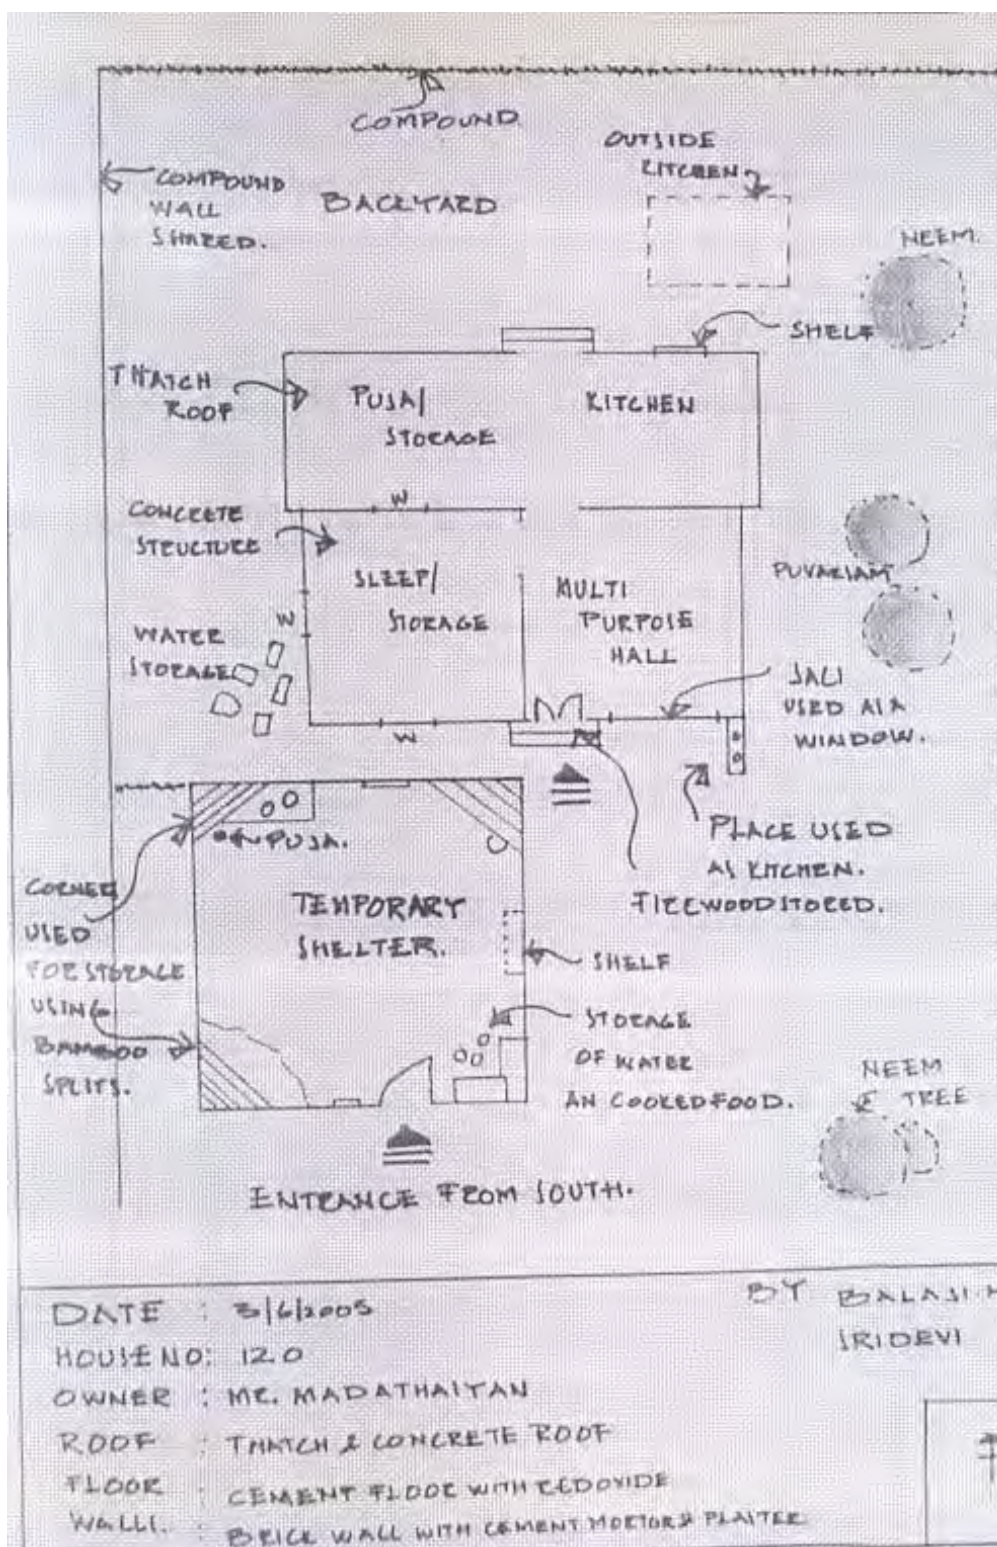 COMPOUND
OUTSIDE
KITCHEN
COMPOUND
WALL
SHARED.
BACKYARD
NEEM
SHELF
THATCH
ROOF
PUJA/
STORAGE
KITCHEN
W
CONCRETE
STRUCTURE
SLEEP/
STORAGE
MULTI
PURPOSE
HALL
PUVARIAM
W
WATER
STORAGE
JALI
USED AS A
WINDOW.
W
PLACE USED
AS KITCHEN.
FIREWOOD STORED.
PUJA.
CORNER
USED
FOR STORAGE
USING
BAMBOO
SPLITS.
TEMPORARY
SHELTER.
SHELF
STORAGE
OF WATER
AN COOKED FOOD.
NEEM
TREE
ENTRANCE FROM SOUTH.
DATE : 3/6/2005
HOUSE NO: 120
OWNER : MR. MADATHAITAN
ROOF : THATCH & CONCRETE ROOF
FLOOR : CEMENT FLOOR WITH REDOXIDE
WALLS : BRICK WALL WITH CEMENT MORTOR & PLASTER
BY BALAJI
SRIDEVI